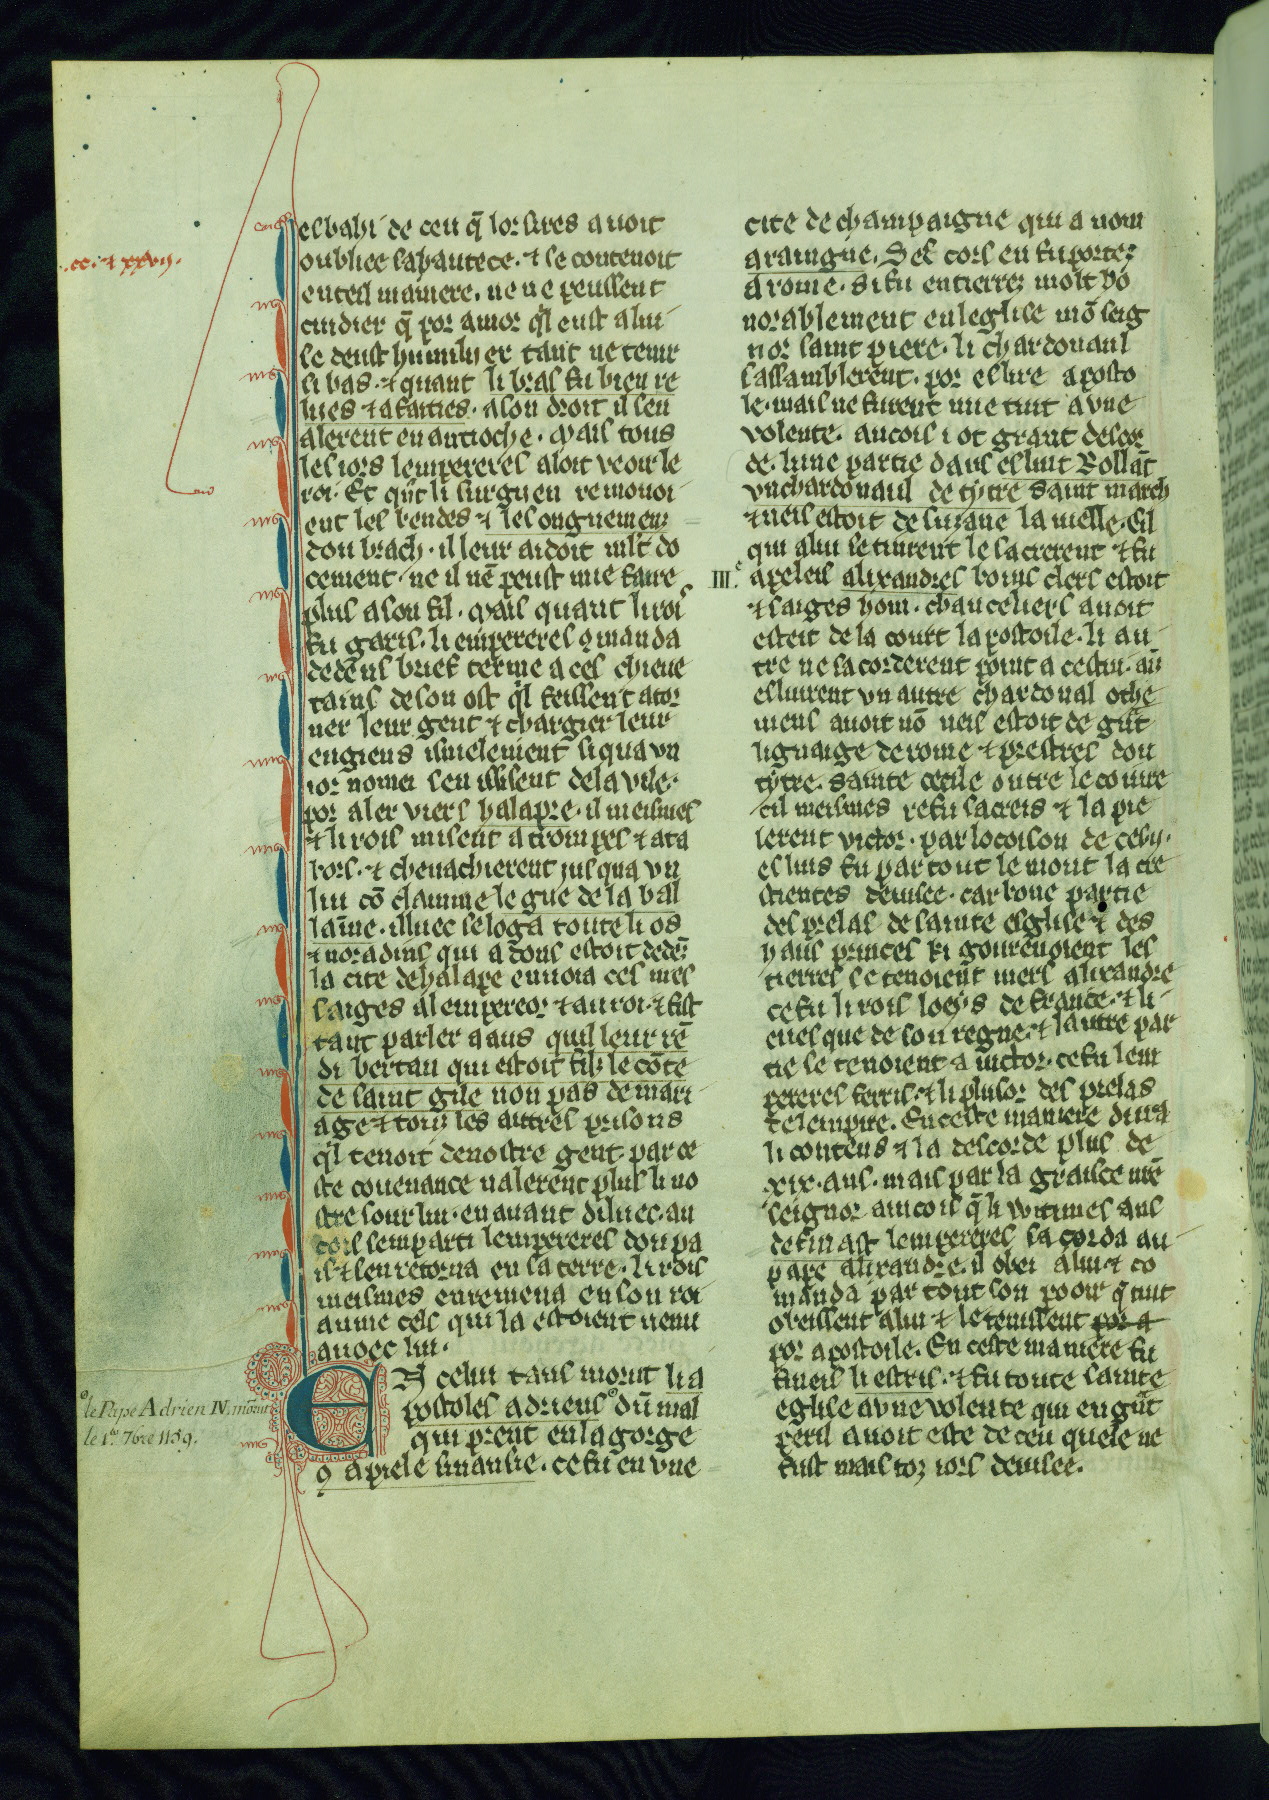 .cc. ⁊ xxvij.
esbahi de ceu q̄ lor sires auoit
oubliee sa hautece. ⁊ se contenoit
en teil maniere. ne ne peussent
cuidier q̄ por amor q̄l eust a lui
se deust humilyer tant ne tenir
si bas. ⁊ quant li bras fu bien re
lues ⁊ afaities. a son droit il sen
alerent en antioche. Mais tous
les iors lempereres aloit veoir le
roi. Et q̄nt li surgyen remouoi
ent les bendes ⁊ les onguemenz
dou brach. il leur aidoit mlt do
cement. ne il nē peust mie faire
plus a son fil. Mais quant li rois
fu garis. li empereres 9manda
dedēns brief terme a ces chieue
tains de son ost q̄l feissent ator
ner leur gent ⁊ chargier leur
engiens isnielement si qua vn
ior nomei sen ississent de la vile.
por aler viers halape. il meismes
⁊ li rois misent a trompes ⁊ a ta
bors. ⁊ cheuachierent jusqua vn
liu cō claimme le gue de la bal
laīne. illuec se loga toute li os
⁊ noradins qui adons estoit dedēs
la cite de halape enuoia ces mes
saiges al empereor ⁊ au roi. ⁊ fist
tant parler a aus quil leur rē
di bertan qui estoit filz le cōte
de saint gile non pas de mari
age ⁊ touz les autres prisons
q̄l tenoit de nostre gent. par ce
ste couenance nalerent plus li no
stre sour lui. en auant diluec. an
cois sem parti lempereres dou pa
is ⁊ sen retorna en sa terre. li rois
meismes enremena en son roi
aume cels qui la estoient uenu
auoec lui.
EN celui tans morut li a
postoles adriens. dū mal
qui prent en la gorge
9 apiele sinansie. ce fu en vne
o le Pape Adrien IV. mourut
le 1.er 7bre 1159.
cite de champaigne qui a nom
araingne. Ses cors en fu portez
a rome. si fu entierrez molt ho
norablement en leglise mō seig
nor saint piere. li chardonaul
sassamblerent. por eslire aposto
le. mais ne furent mie tuit a vne
volente. ancois i ot grant descor
de. lune partie dans eslut Rollāt
vn chardonaul de tytre saint march
⁊ neis estoit de siane la uielle. Cil
qui a lui se tinrent le sacrerent ⁊ fu
III.e apeleis alixandres boins clers estoit
⁊ saiges hom. chanceliers auoit
esteit de la court lapostoile. li au
tre ne sacorderent point a cestui. aī
esluirent vn autre chardonal othe
niens auoit nō neis estoit de grāt
lignaige de rome ⁊ prestres dou
tytre. sainte cecile outre le couire
cil meismes refu sacreis ⁊ lapie
lerent victor. par locoison de cesy.
esluis fu par tout le mont la cre
stientes deuisee. car bone partie
des prelas de sainte esglise ⁊ des
haus princes ki gouuernoient les
tierres se tenoient uiers alixandre
ce fu li rois loeys de france. ⁊ li
euesque de son regne. ⁊ lautre par
tie se tenoient a uictor. ce fu lem
pereres ferris. ⁊ li plusor des prelas
de lempire. En ceste maniere dura
li contens ⁊ la descorde plus de
xix. ans. mais par la graisce nr̄e
seignor aincois q̄ li witimes ans
definast lempereres sacorda au
pape alixandre. il obei a lui ⁊ co
manda par tout son pooir q̄ tuit
obeissent a lui ⁊ le tenissent por a
por apostoile. En ceste maniere fu
fineis li estris. ⁊ fu toute sainte
eglise a vne volente qui en grāt
peril auoit este de ceu quele ne
fust mais toz iors deuisee.